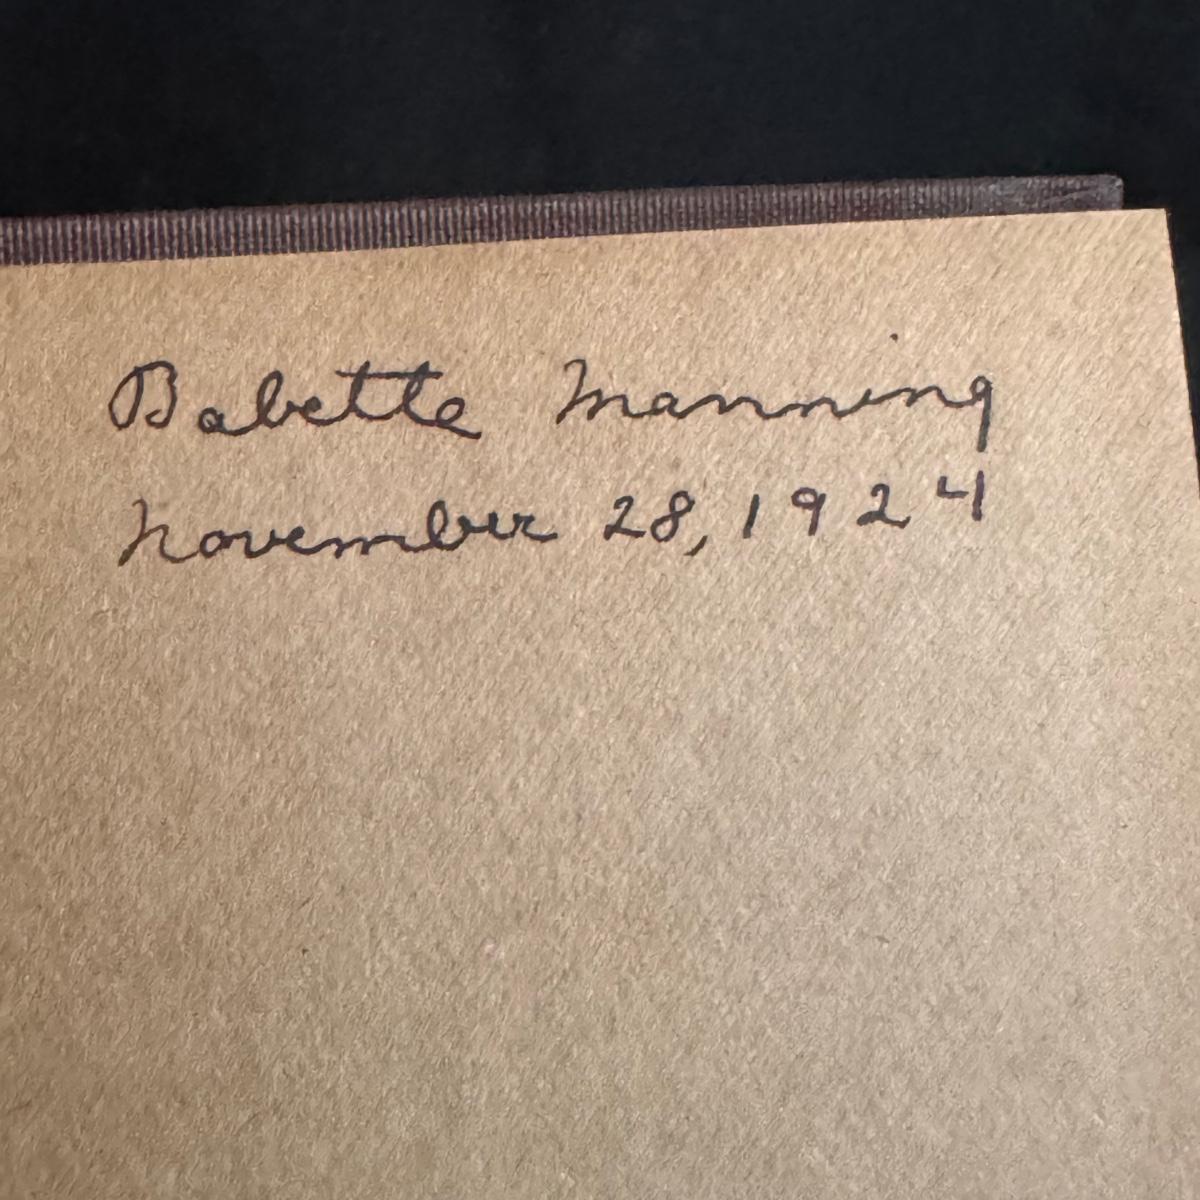 Babette Manning
November 28, 1924